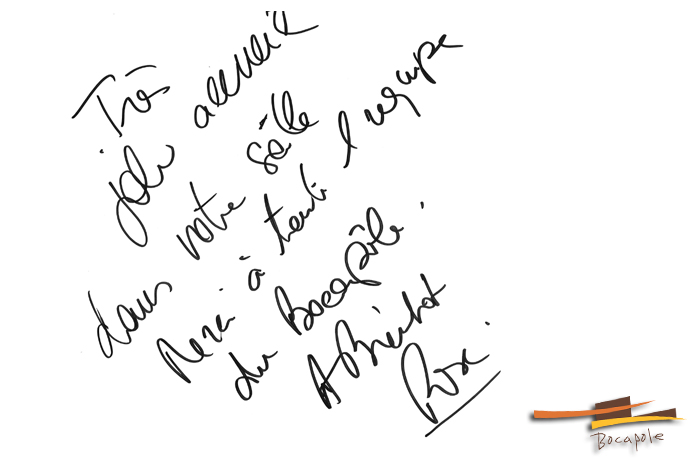 Très
joli accueil
dans votre salle
Merci à toute l'équipe
du Bocapôle.
A Bientôt
Bocapole